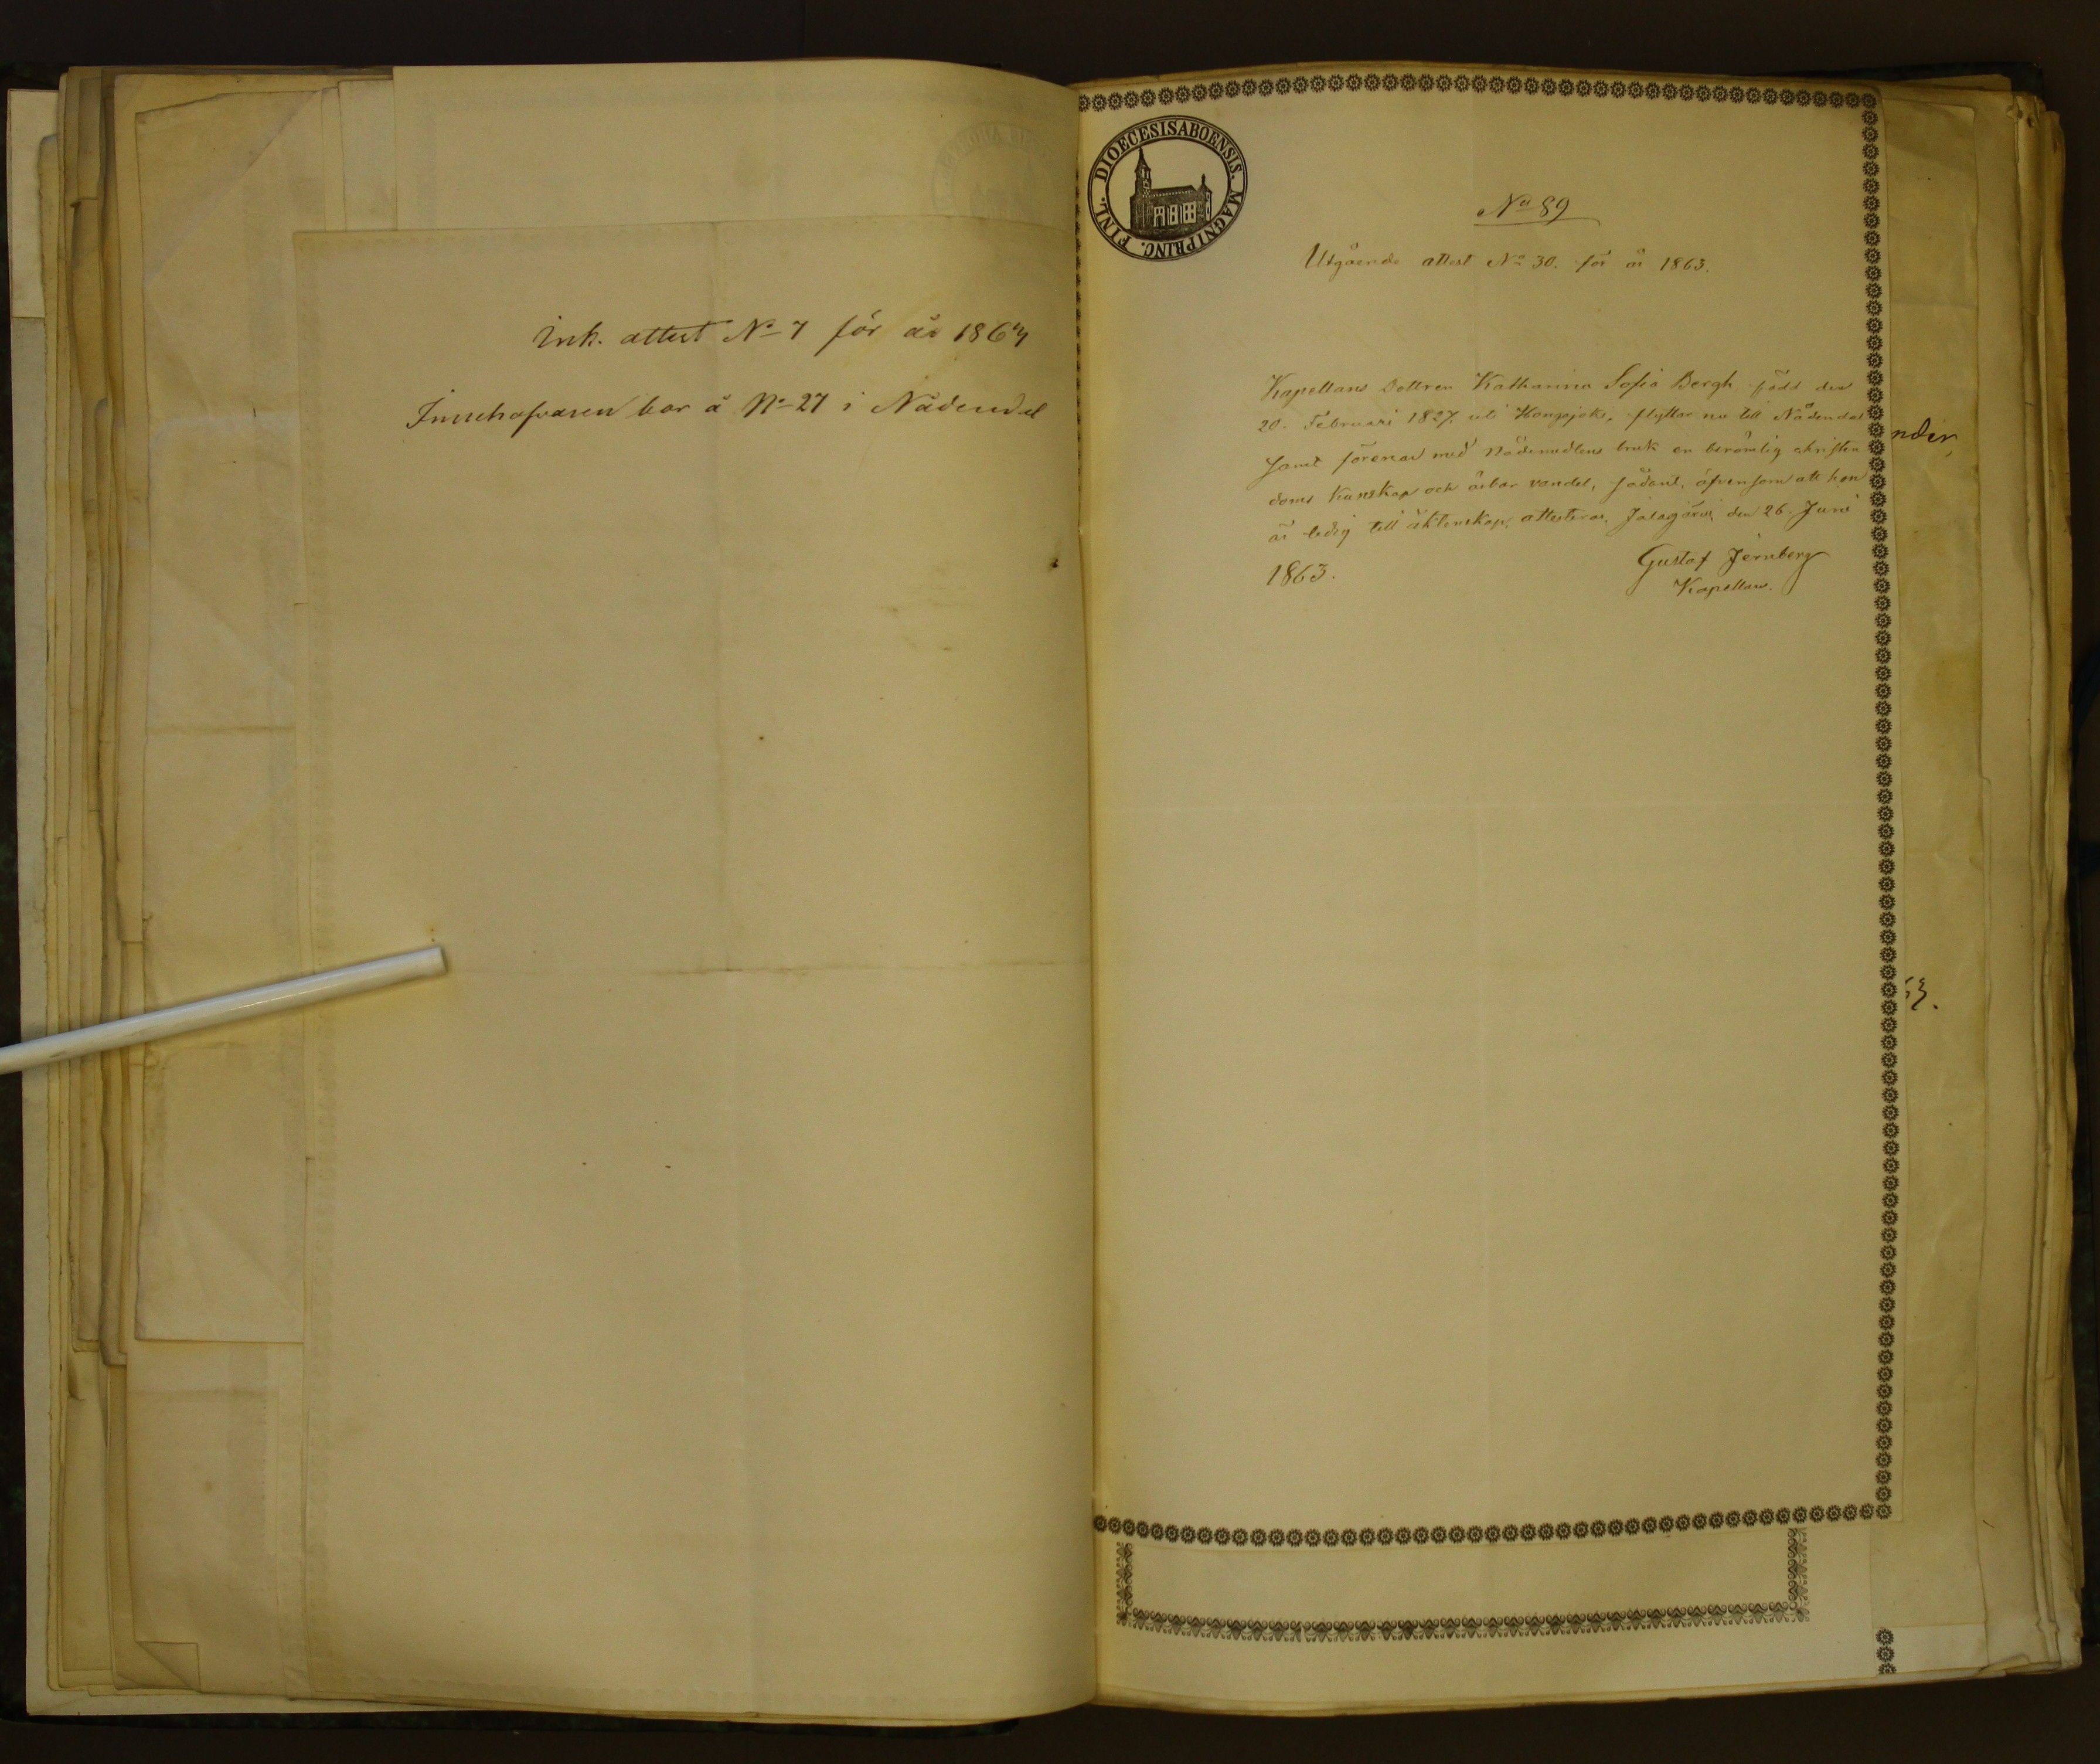 Ink. attest No 7 för år 1864
Innehafvaren bor å No 27 i Nådendal
DIOECESISABOENSIS. MAGNIPRINC. FINL.
No 89
Utgående attest No 30. för år 1863.
Kapellans Dottren Katharina Sofia Bergh född den
20. Februari 1827. uti Hongojoki, flyttar nu till Nådendal
samt förenar med Nådemedlens bruk en berömlig christen
doms kunskap och ärbar vandel, sådant, äfvensom att hon
är ledig till äktenskap, attesteras. Jalasjärvi, den 26. Juni
1863.
Gustaf Jernberg
Kapellan.
nder,
63.